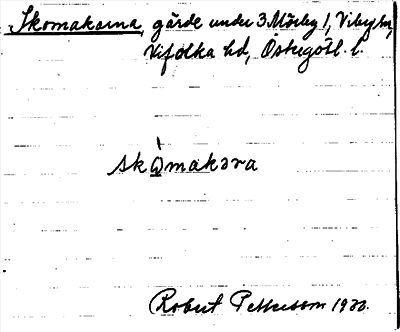 Skomakarna, gärde under 3 Mörby 1, Viby sn,
Vifolka hd, Östergötl. l.
skòmakara
Robert Pettersson 1933.